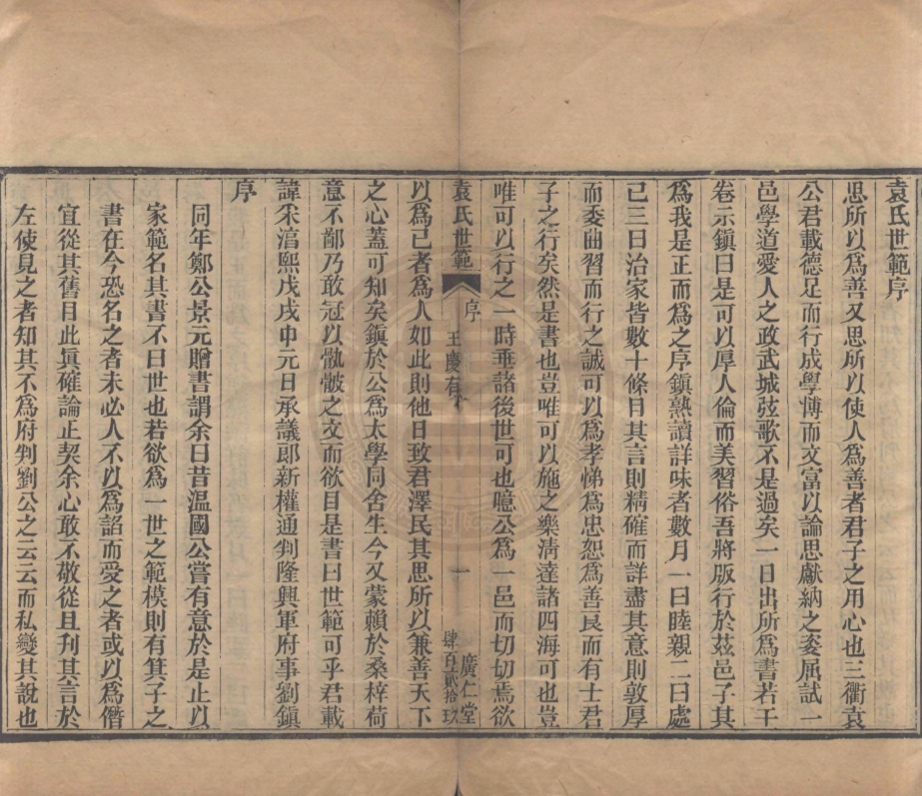 袁氏世範序
思所以爲善又思所以使人爲善者君子之用心也三衢袁
公君載德足而行成學博而文富以論思獻納之姿屈試一
邑學道愛人之政武城弦歌不是過矣一日出所爲書若干
卷示鎭曰是可以厚人倫而美習俗吾將版行於茲邑子其
爲我是正而爲之序鎭熟讀詳味者數月一曰睦親二曰處
已三曰治家皆數十條目其言則精確而詳盡其意則敦厚
而委曲習而行之誠可以爲孝悌爲忠恕爲善良而有士君
子之行矣然是書也豈唯可以施之樂淸達諸四海可也豈
唯可以行之一時垂諸後世可也噫公爲一邑而切切焉欲
袁氏世範
序
王慶有
一
廣仁堂
肆百貳拾玖
以爲已者爲人如此則他日致君澤民其思所以兼善天下
之心蓋可知矣鎭於公爲太學同舍生今又蒙賴於桑梓荷
意不鄙乃敢冠以骩骳之文而欲目是書曰世範可乎君載
諱采淳熙戊戌中元日承議郎新權通判隆興軍府事劉鎭
序
同年鄭公景元贈書謂余曰昔温國公嘗有意於是止以
家範名其書不曰世也若欲爲一世之範模則有箕子之
書在今恐名之者未必人不以爲諂而受之者或以爲僭
宜從其舊目此眞確論正契余心敢不敬從且刊其言於
左使見之者知其不爲府判劉公之云云而私變其說也